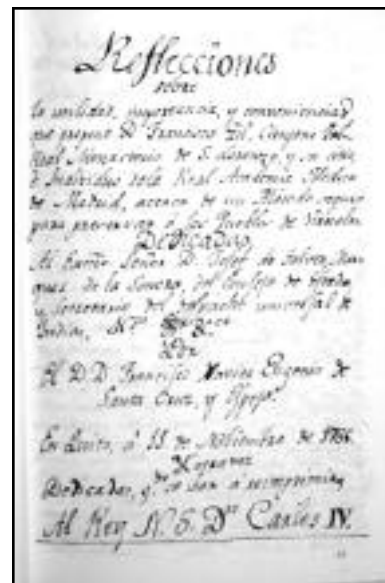 Reflecciones
sobre
la utilidad, importancia, y conveniencias
que propone Dn Francisco Gil, Cirujano del
Real Monasterio de S. Lorenzo, y su sitio,
é Individuo de la Real Academia Médica
de Madrid, acerca de un Método seguro
para preservar á los Pueblos de Viruelas
DEDICADAS
Al Señor D. Josef de Galvez, Mar
ques de la Sonora, del Consejo de Estado,
y Secretario del despacho universal de
Indias,
Por
El D.D. Francisco Xavier Eugenio de
Santa Cruz, y Espejo.
En Quito, á 11 de Noviembre de
Dedicadas, y se dan a
Al Rey N. S. Dn Carlos IV.